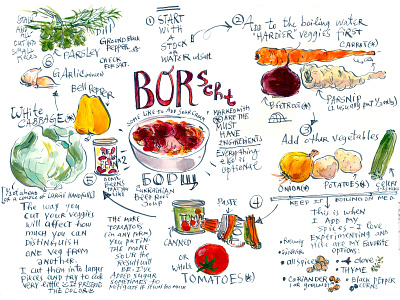 BÓRscht
SOME LIKE TO ADD SOUR CREAM
БОРЩ
UKRAINIAN
BEETROOT
SOUP
① START
WITH
A
STOCK
OR
WATER
② Add to the boiling water
"HARDER" veggies first
CARROT(*)
BEETROOT(*)
PARSNIP
(I usually put 1/2 only)
MARKED WITH
(*) ARE THE
MUST
HAVE
INGREDIENTS
EVERYTHING
ELSE IS
OPTIONAL
③
Add other vegetables
ONION(*)
POTATOES(*)
CELERY
KEEP BOILING ON MED.
This is when
I add my
spices - I love
experimenting and
here are my favorite
options:
Bay
Ginger
CLOVE
THYME
CORIANDER
(or ground)
BLACK PEPPER
CORNS
④
PASTE
CANNED
OR
WHOLE
TOMATOES(*)
THE MORE
TOMATOES
(IN ANY FORM)
YOU PUT IN-
THE MORE
SOUR THE
RESULT WILL
BE. I'VE
ADDED SUGAR
SOMETIMES TO
⑤
Bell Pepper
WHITE
CABBAGE(*)
RED
BEANS
The way you
cut your veggies
will affect how
much you can
distinguish
one veg from
another.
I cut them into larger
pieces and try to cook
very little to PRESENT
THE COLOR
⑥
GARLIC
PARSLEY
Dill
GROUND BLACK
PEPPER
CHECK
FOR SALT.
CUT INTO
SMALL
PIECES